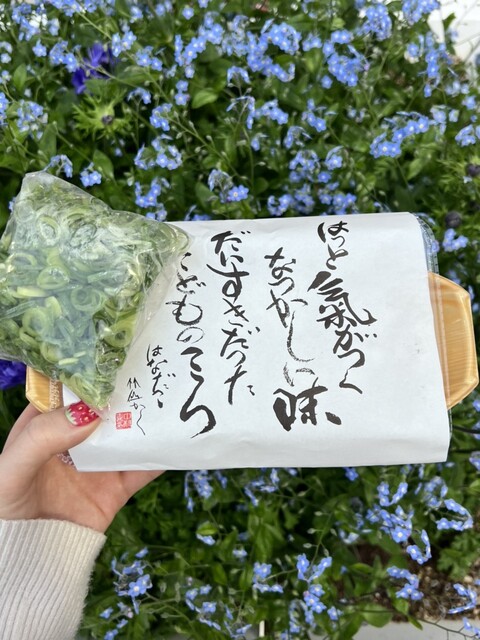 はっと氣がつく
なつかしい味
だいすきだった
こどものころ
はなだこ